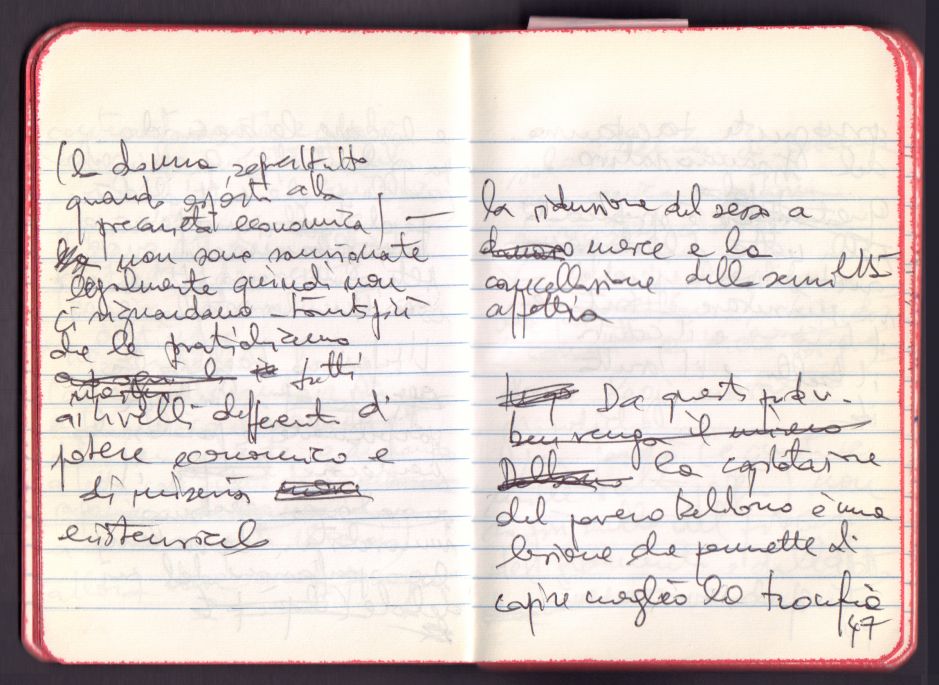 (la donna soprattutto
quando esposta alla
precarietà economica) —
non sono sanzionate
legalmente quindi non
ci riguardano – tant'è più
che le pratichiamo
tutti
ai livelli differenti di
potere economico e
di miseria
esistenziale
la riduzione del sesso a
merce e la
cancellazione della
affettiva
Da questo
benvenga il misero
la
del povero Beldono è una
lezione che permette di
capire meglio la
47